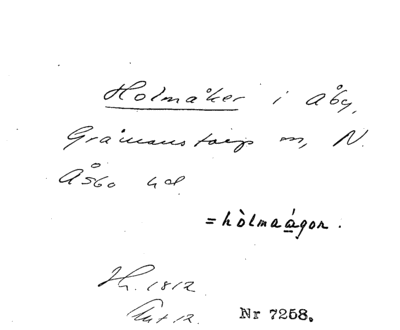 Holmåker i Åby,
Gråmanstorp sn, N.
Åsbo hd
= hòlmaágor.
Hh. 1812
Akt 12. Nr 7258.